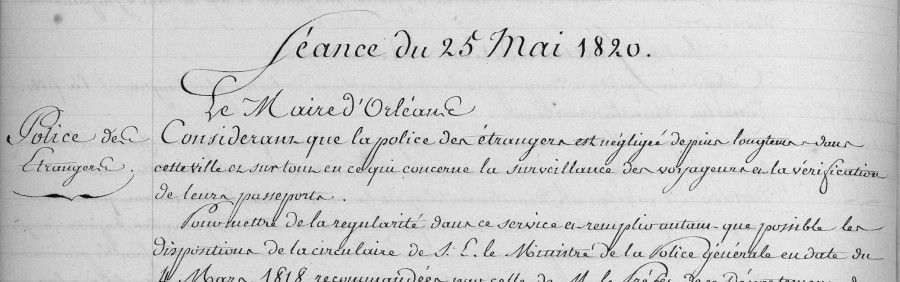 Séance du 25 Mai 1820.
Le Maire d'Orléans
Police des
Etrangers.
Considerant que la police des étrangers est négligée depuis longtems dans
cette ville et surtout en ce qui concerne la surveillance des voyageurs et la vérification
de leurs passeports.
Pour mettre de la regularité dans ce service et remplir autant que possible les
dispositions de la circulaire de S. E. le Ministre de la Police générale en date du
Mars 1818 recommandées par celle de M. le Préfet de ce Département